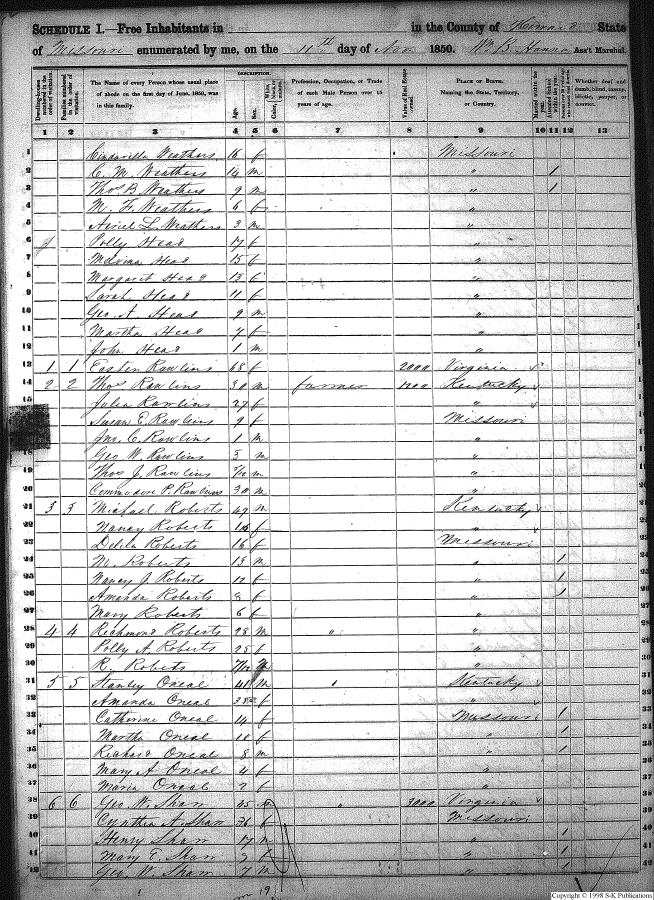 SCHEDULE I.—Free Inhabitants in in the County of State
of Missouri enumerated by me, on the 11th day of Nov 1850. Wm B. Hanna Ass't Marshal.
Dwelling-houses numbered in the order of visitation.
Families numbered in the order of visitation.
The Name of every Person whose usual place of abode on the first day of June, 1850, was in this family.
DESCRIPTION.
Age.
Sex.
Color, White, black, or mulatto.
Profession, Occupation, or Trade of each Male Person over 15 years of age.
Value of Real Estate owned.
PLACE OF BIRTH. Naming the State, Territory, or Country.
Married within the year.
Attended School within the year.
Whether deaf and dumb, blind, insane, idiotic, pauper, or convict.
1 2 3 4 5 6 7 8 9 10 11 12 13
1 Weathers 16 f Missouri
2 C. M. Weathers 14 m " 1
3 Thos B Weathers 9 m " 1
4 M. F. Weathers 6 f "
5 L. Weathers 3 m "
6 Polly Head 17 f "
7 Melvina Head 15 f "
8 Margaret Head 13 f "
9 Sarah Head 11 f "
10 Geo. A Head 9 m "
11 Martha Head 7 f "
12 John Head 1 m "
13 1 1 Easten Rawlins 68 f 2000 Virginia
14 2 2 Thos Rawlins 30 m farmer 1200 Kentucky
Julia Rawlins 27 f "
Susan E. Rawlins 9 f Missouri
Jno. C. Rawlins 1 m "
18 Geo W. Rawlins 5 m "
19 Thos J. Rawlins m "
20 Commodore P. Rawlins 30 m "
21 3 3 Michael Roberts 49 m Kentucky
22 Nancy Roberts f "
23 Delila Roberts 16 f Missouri
24 Roberts 13 m " 1
25 Nancy J. Roberts 12 f " 1
26 Amanda Roberts 8 f " 1
27 Mary Roberts 6 f "
28 4 4 Richmond Roberts 28 m " "
29 Polly A. Roberts 25 f "
30 R. Roberts m "
31 5 5 Stanley Oneal 41 m Kentucky
32 Amanda Oneal 38 f "
33 Catherine Oneal 14 f Missouri 1
34 Martha Oneal 10 f " 1
35 Richard Oneal 8 m " 1
36 Mary A Oneal 4 f "
37 Maria Oneal 2 f "
38 6 6 Geo. W. Shaw 45 " 3000 Virginia
39 Cynthia A. Shaw 36 f Missouri
40 Henry Shaw 17 m " 1
41 Mary E. Shaw 9 f " 1
42 Geo. W. Shaw 7 m " 1
m 19
Copyright © 1998 S-K Publications